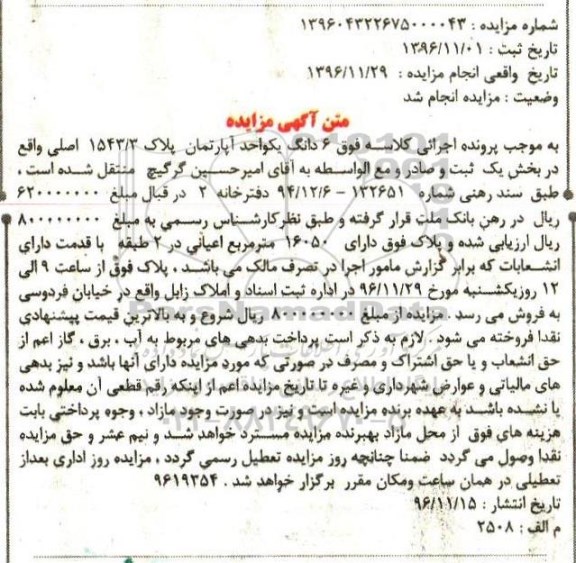 شماره مزایده : ۱۳۹۶۰۴۳۲۲۶۷۵۰۰۰۰۴۳
تاریخ ثبت : ۱۳۹۶/۱۱/۰۱
تاریخ واقعی انجام مزایده : ۱۳۹۶/۱۱/۲۹
وضعیت : مزایده انجام شد
متن آگهی مزایده
به موجب پرونده اجرائی کلاسه فوق ۶ دانگ یکواحد آپارتمان پلاک ۱۵۴۳/۳ اصلی واقع
در بخش یک ثبت و صادر و مع الواسطه به آقای امیرحسین گرگیج منتقل شده است ،
طبق سند رهنی شماره ۱۳۲۶۵۱ – ۹۴/۱۲/۶ دفترخانه ۲ در قبال مبلغ ۶۲۰۰۰۰۰۰۰
ریال در رهن بانک ملت قرار گرفته و طبق نظر کارشناس رسمی به مبلغ ۸۰۰۰۰۰۰۰۰
ریال ارزیابی شده و پلاک فوق دارای ۱۶۰۵۰ مترمربع اعیانی در ۲ طبقه با قدمت دارای
انشعابات که برابر گزارش مامور اجرا در تصرف مالک می باشد ، پلاک فوق از ساعت ۹ الی
۱۲ روزیکشنبه مورخ ۹۶/۱۱/۲۹ در اداره ثبت اسناد و املاک زابل واقع در خیابان فردوسی
به فروش می رسد . مزایده از مبلغ ۸۰۰۰۰۰۰۰۰ ریال شروع و به بالاترین قیمت پیشنهادی
نقدا فروخته می شود . لازم به ذکر است پرداخت بدهی های مربوط به آب ، برق ، گاز اعم از
حق انشعاب و یا حق اشتراک و مصرف در صورتی که مورد مزایده دارای آنها باشد و نیز بدهی
های مالیاتی و عوارض شهرداری و غیره تا تاریخ مزایده اعم از اینکه رقم قطعی آن معلوم شده
یا نشده باشد به عهده برنده مزایده است و نیز در صورت وجود مازاد ، وجوه پرداختی بابت
هزینه های فوق از محل مازاد بهبرنده مزایده مسترد خواهد شد و نیم عشر و حق مزایده
نقدا وصول می گردد ضمنا چنانچه روز مزایده تعطیل رسمی گردد ، مزایده روز اداری بعداز
تعطیلی در همان ساعت ومکان مقرر برگزار خواهد شد . ۹۶۱۹۳۵۴
تاریخ انتشار : ۹۶/۱۱/۱۵
م الف : ۲۵۰۸
ParsNamadData